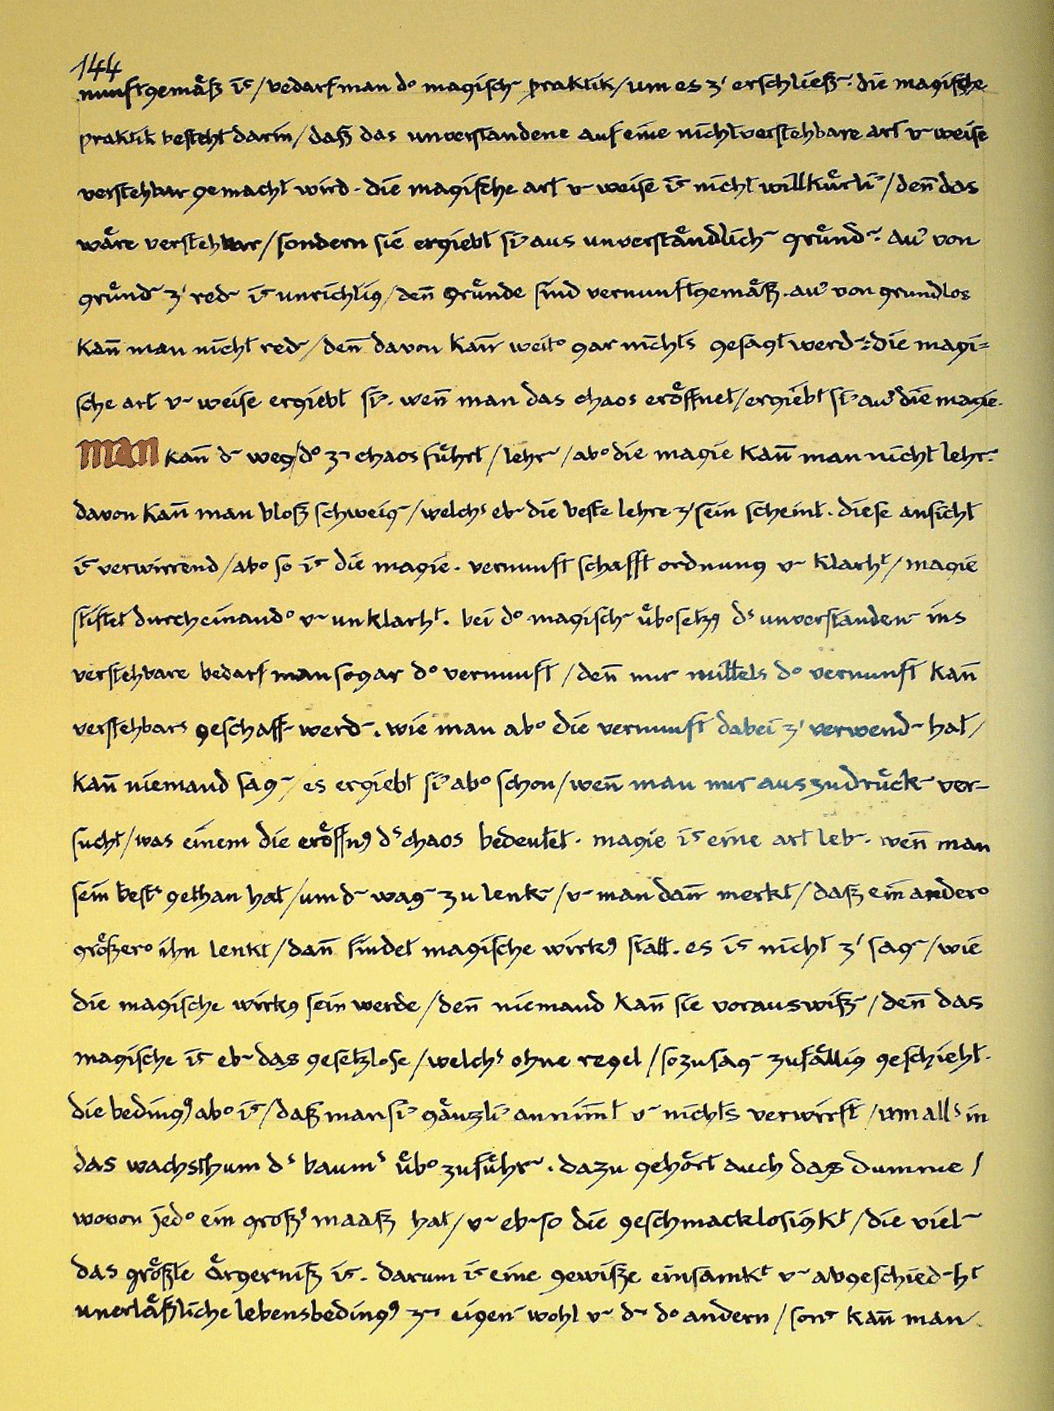 144
nunftgemäß is/bedarf man do magisch praktik/um es z' erschließ. die magische
praktik besteht darin/daß das unverstandene auf eine nichtverstehbare art v weise
verstehbar gemacht wird. die magische art v weise is nicht willkürli/deñ das
wäre verstehbar/sondern sie ergiebt si aus unverständlich gründ. au von
gründ z' red is unrichtig/deñ gründe sind vernunftgemäß. au von grundlos
kañ man nicht red/deñ davon kañ weito gar nichts gesagt werd. die magi=
sche art v weise ergiebt si. weñ man das chaos eröffnet/ergiebt si au die magie.
man kañ d weg/do z chaos führt/lehr/abo die magie kañ man nicht lehr.
davon kañ man bloß schweig/welchs eb die beste lehre z' sein scheint. diese ansicht
is verwirrend/abo so is die magie. vernunft schafft ordnung v klarht/magie
stiftet durcheinando v unklarht. bei do magisch übosetzg ds unverstanden ins
verstehbare bedarf man sogar do vernunft/deñ nur mittels do vernunft kañ
verstehbars geschaff werd. wie man abo die vernunft dabei z' verwend hat/
kañ niemand sag/es ergiebt si abo schon/weñ man nur auszudrück ver-
sucht/was einem die eröffng ds chaos bedeutet. magie is eine art leb. weñ man
sein bests gethan hat/um d wag zu lenk/v man dañ merkt/daß ein andero
größero ihn lenkt/dañ findet magische wirkg statt. es is nicht z' sag/wie
die magische wirkg sein werde/deñ niemand kañ sie vorauswiß/deñ das
magische is eb das gesetzlose/welchs ohne regel/sozusag zufällig geschieht.
die bedingg abo is/daß man si gänzli annim̄t v nichts verwirft/um alls in
das wachsthum ds baums übo zuführ. dazu gehört auch das dumme/
wovon jedo ein großs maaß hat/v eb so die geschmacklosigkt/die viel
das größte ärgerniß is. darum is eine gewiße einsamkt v abgeschiedht
unerläßliche lebensbedingg z eigen wohl v d do andern/sons kañ man